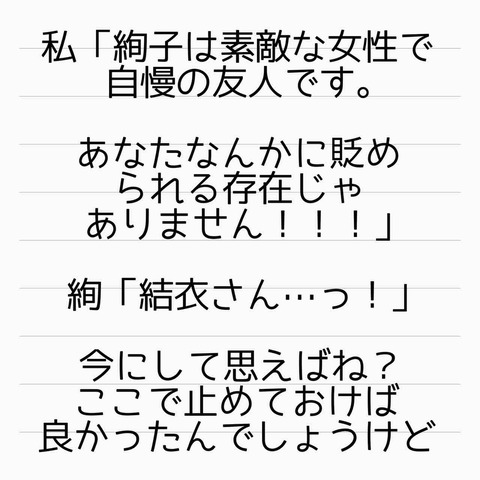 私「絢子は素敵な女性で
自慢の友人です。
あなたなんかに貶め
られる存在じゃ
ありません！！！」
絢「結衣さん…っ！」
今にして思えばね？
ここで止めておけば
良かったんでしょうけど